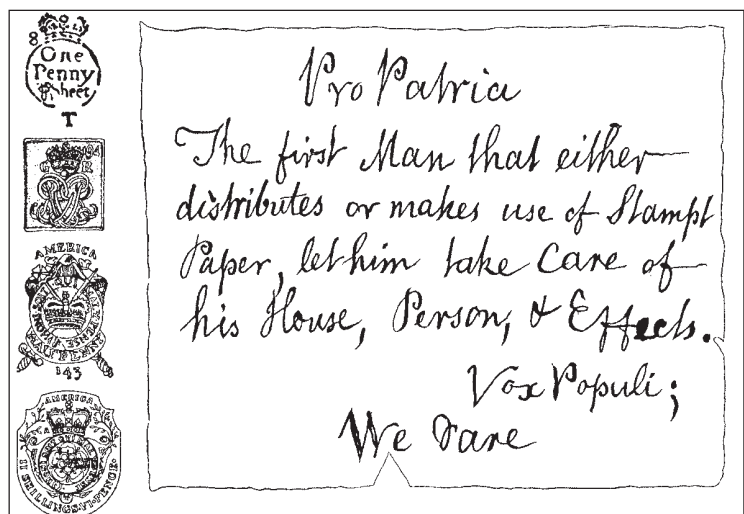 8
One
Penny
Sheet
T
G R
AMERICA
HALF PENNY
143
AMERICA
II SHILLINGS VI PENCE
Pro Patria
The first Man that either
distributes or makes use of Stampt
Paper, let him take Care of
his House, Person, & Effects.
Vox Populi;
We dare